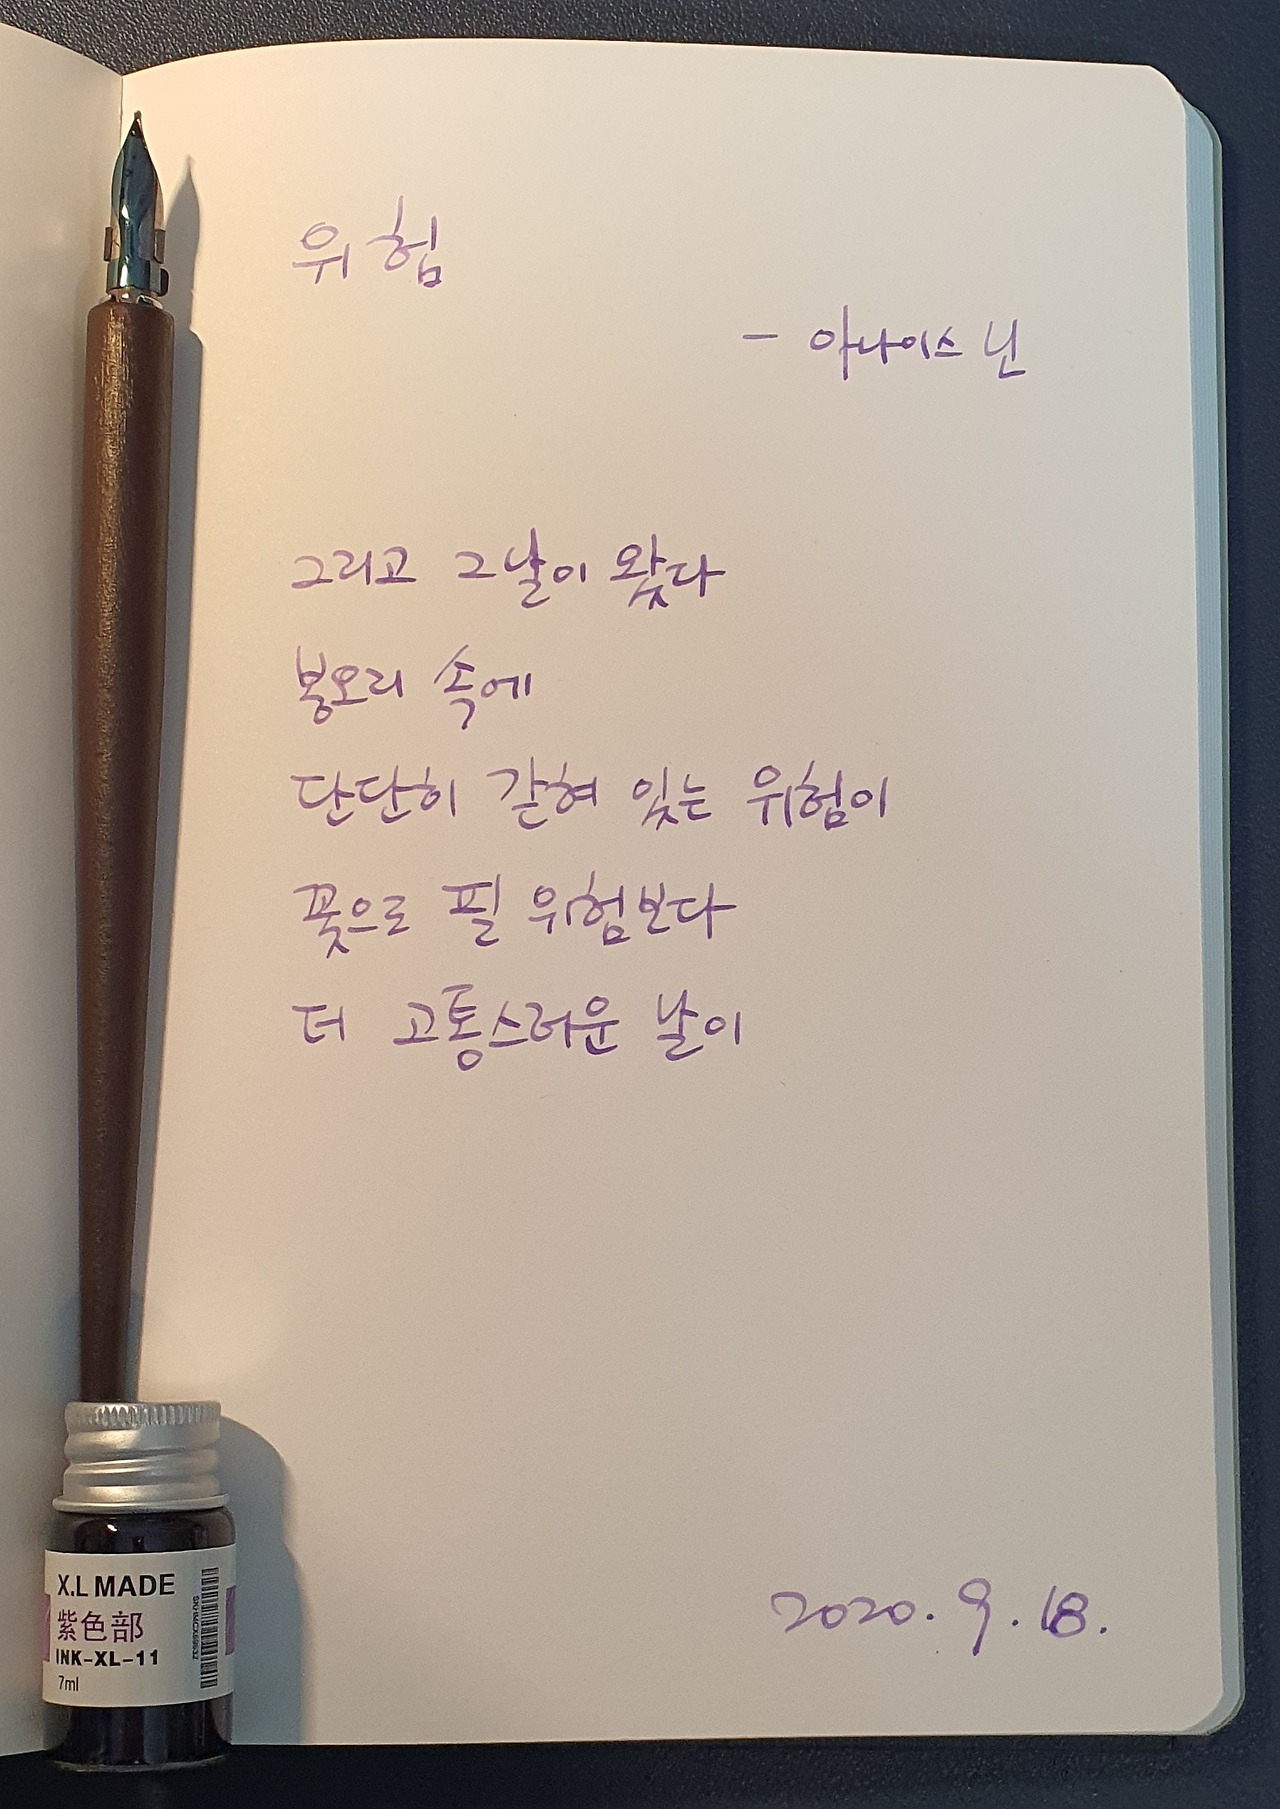 위험
- 아나이스 닌
그리고 그날이 왔다
봉오리 속에
단단히 갇혀 있는 위험이
꽃으로 필 위험보다
더 고통스러운 날이
2020. 9. 18.
X.L MADE
紫色部
INK-XL-11
7ml